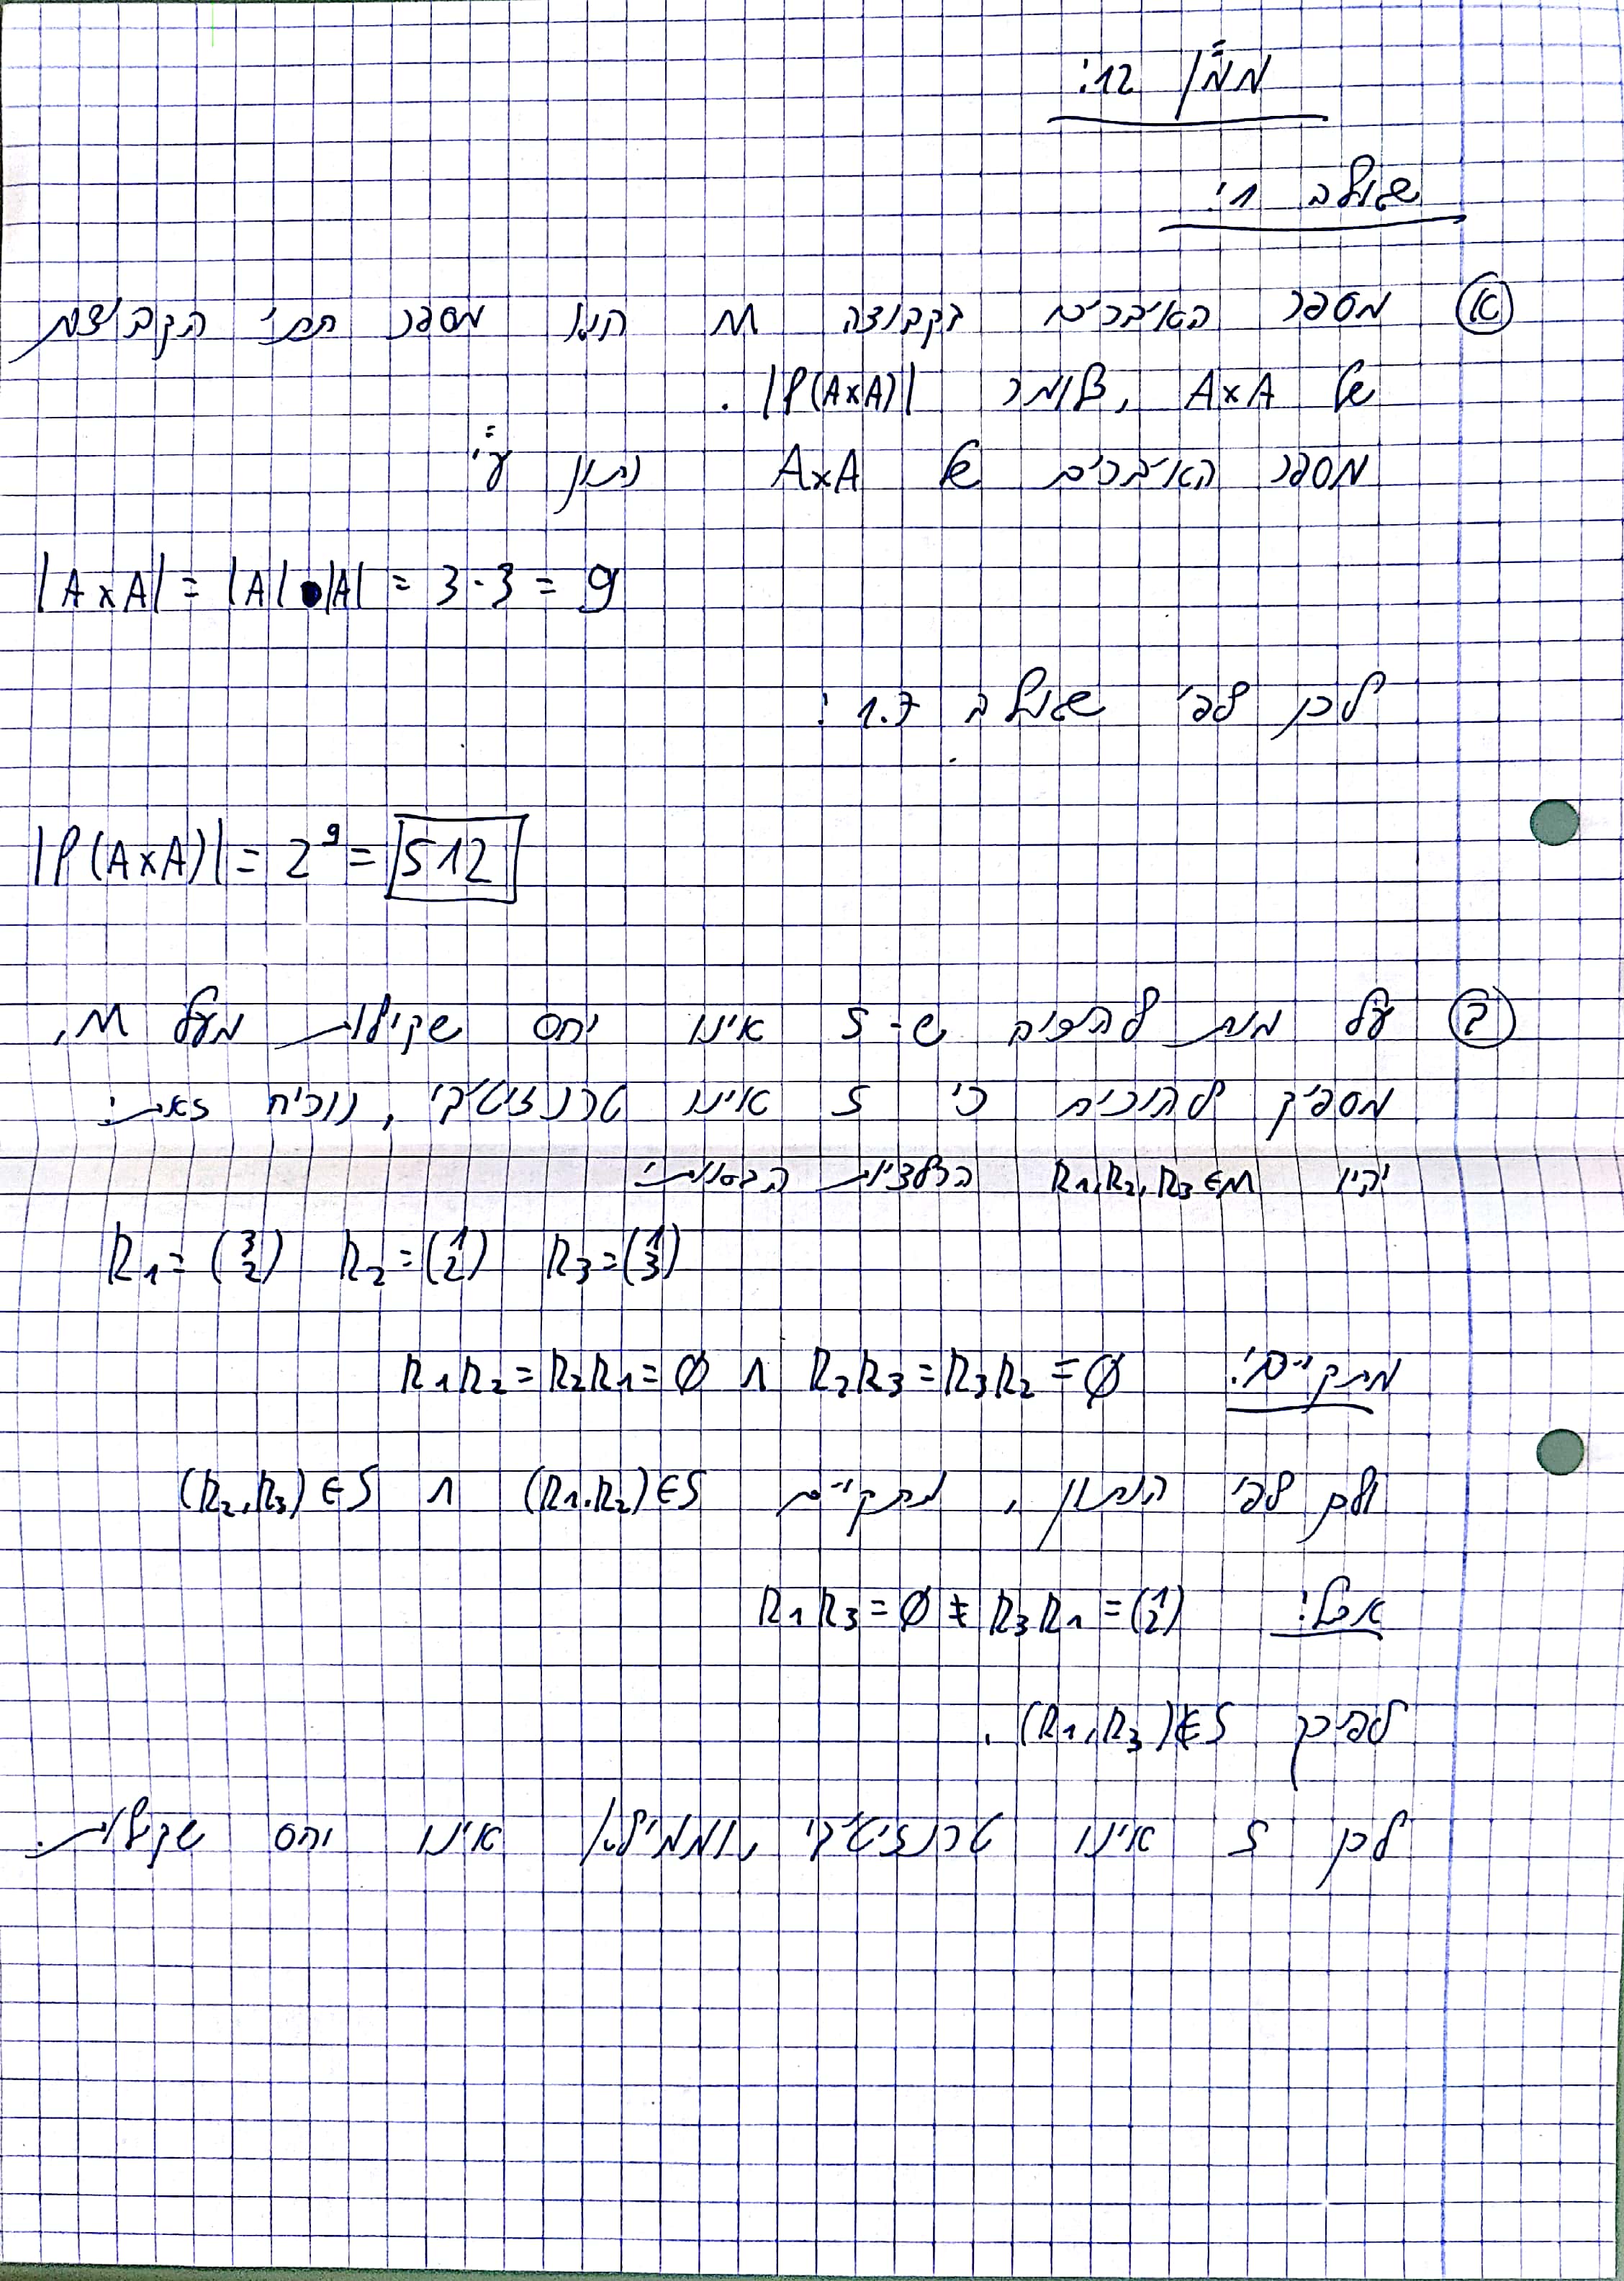 ממ"ן 12:
שאלה 1:
א) מספר האיברים בקבוצה M הוא מספר תתי הקבוצות
של A×A, כלומר |P(A×A)|.
מספר האיברים של A×A נתון ע"י
|A×A| = |A|·|A| = 3·3 = 9
לכן לפי שאלה 1.7:
|P(A×A)| = 2⁹ = 512
ב) על מנת להוכיח ש-S אינו יחס שקילות מעל M,
מספיק להוכיח כי S אינו טרנזיטיבי, נוכיח זאת:
יהיו R₁,R₂,R₃∈M הרלציות הבאות:
R₁=(3 2) R₂=(1 2) R₃=(1 3)
מתקיים: R₁R₂=R₂R₁=∅ ∧ R₂R₃=R₃R₂=∅
ולכן לפי הנתון, מתקיים (R₁,R₂)∈S ∧ (R₂,R₃)∈S
אבל: R₁R₃=∅≠R₃R₁=(1 2)
לפיכך (R₁,R₃)∉S.
לכן S אינו טרנזיטיבי, וממילא אינו יחס שקילות.